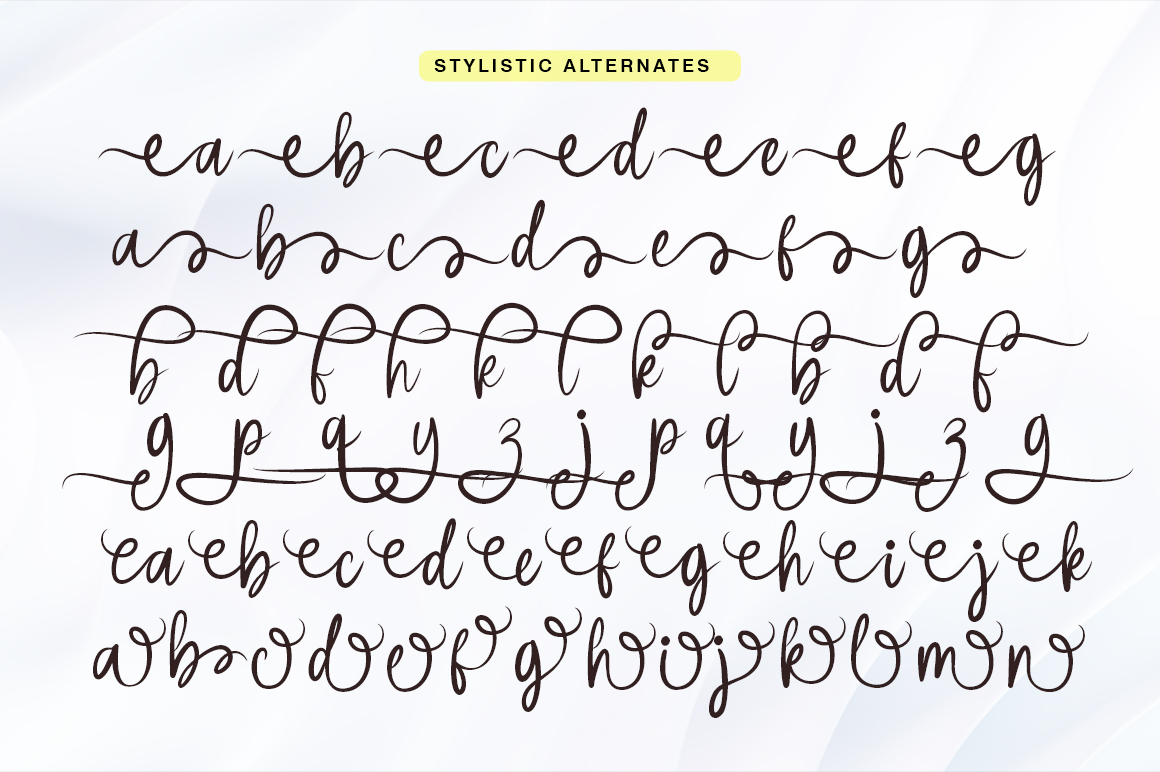 STYLISTIC ALTERNATES
a b c d e f g
a b c d e f g
b d f h k l k l b d f
g p q y z j p q y j z g
a b c d e f g h i j k
a b c d e f g h i j k l m n